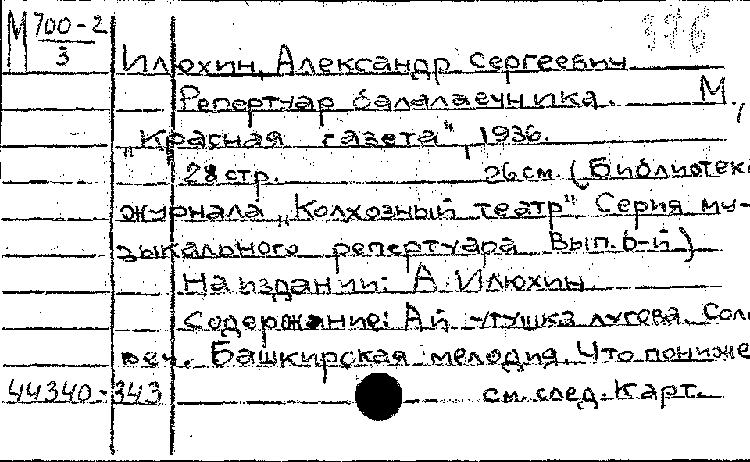 М 700-2
3
376
Илюхин, Александр Сергеевич
Репертуар балалаечника. М.,
„Красная газета“, 1936.
28 стр. 26 см. (Библиотека
журнала „Колхозный театр“ Серия му-
зыкального репертуара Вып. 6-й)
На издании: А. Илюхин
Содержание: Ай утушка лугова. Соло
веч. Башкирская мелодия. Что пониже
44340-343 см. след. карт.